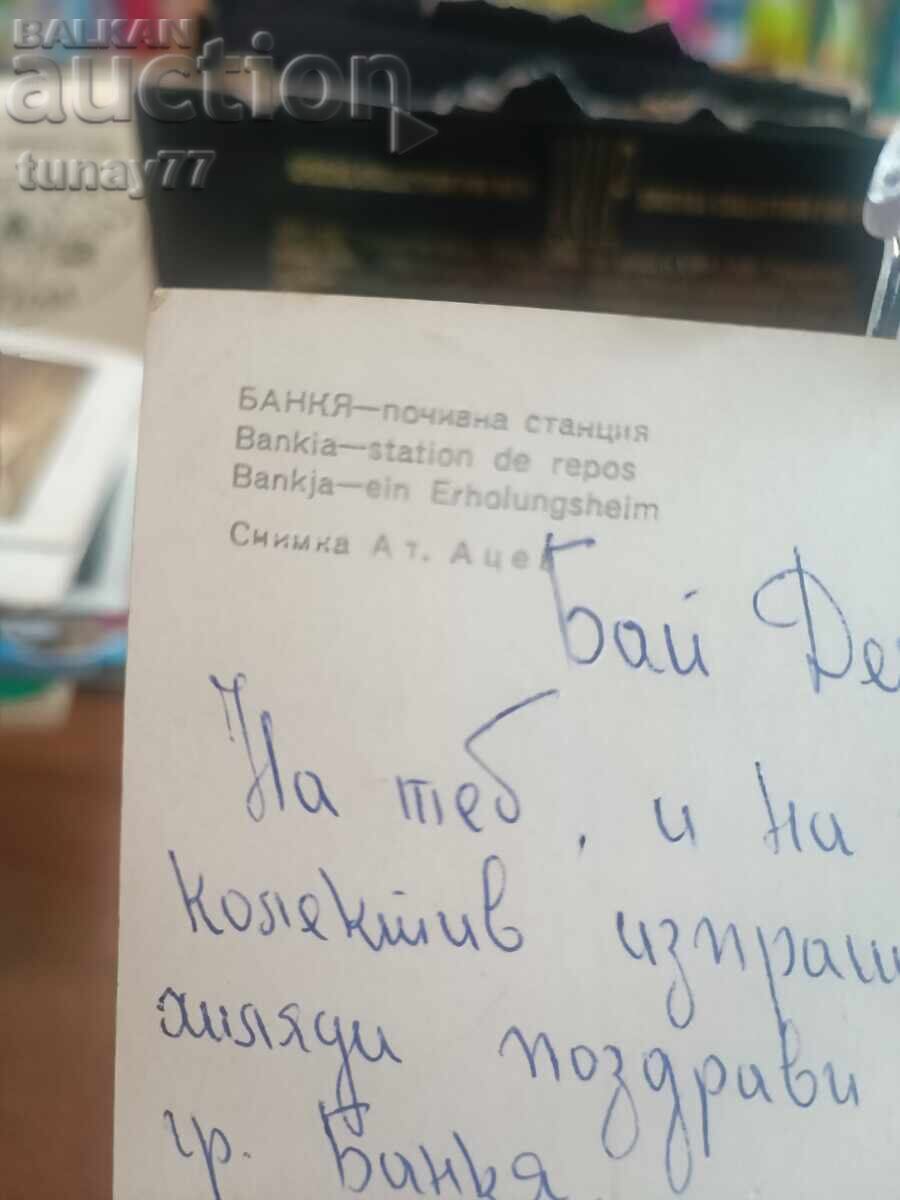 BALKAN
auction
tunay77
БАНКЯ—почивна станция
Bankia—station de repos
Bankja—ein Erholungsheim
Снимка Ат. Ацев
Бай Де
На теб, и на
колектив изпращ
хиляди поздрави
гр. Банкя